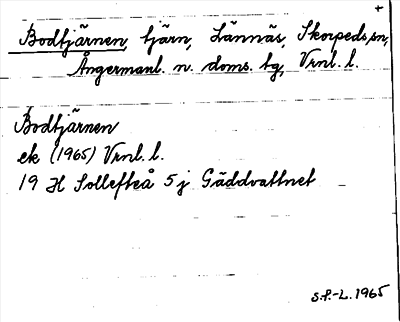 +
Bodtjärnen, tjärn, Lännäs, Skorpeds sn,
Ångermanl. n. doms. tg, Vrnl. l.
Bodtjärnen
ek (1965) Vrnl. l.
19 H Sollefteå 5 j Gäddvattnet
S.F.-L. 1965